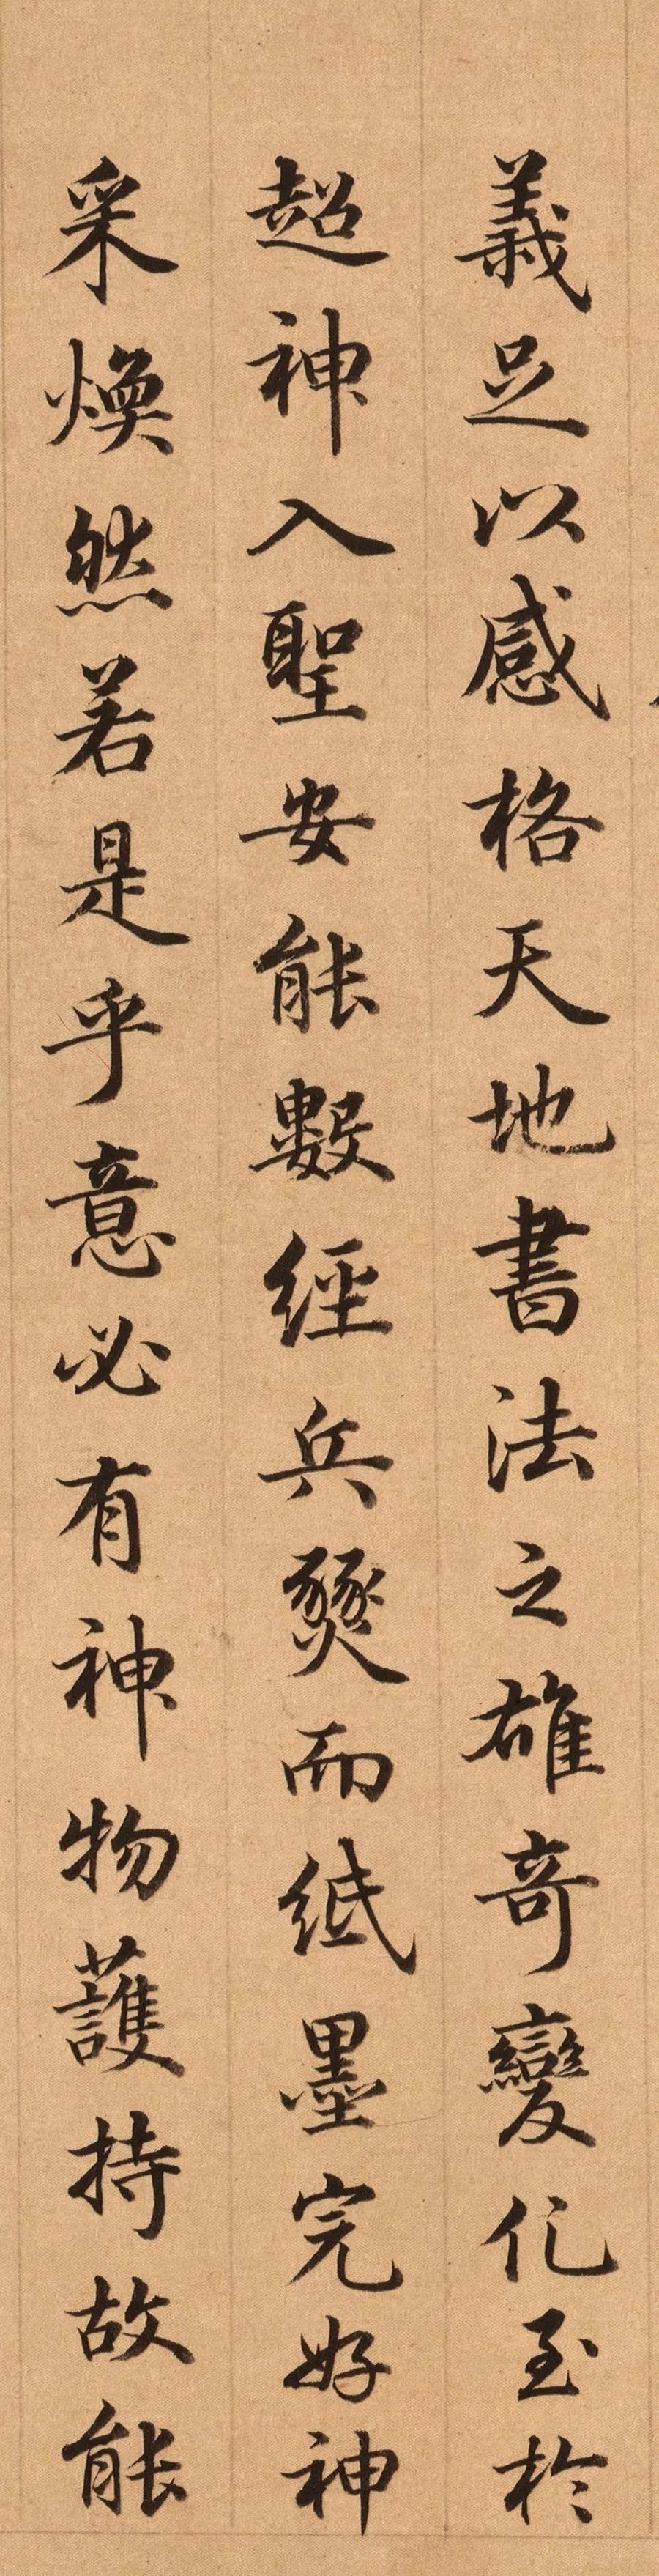 義足以感格天地書法之雄奇變化至於
超神入聖安能數經兵燹而紙墨完好神
采煥然若是乎意必有神物護持故能